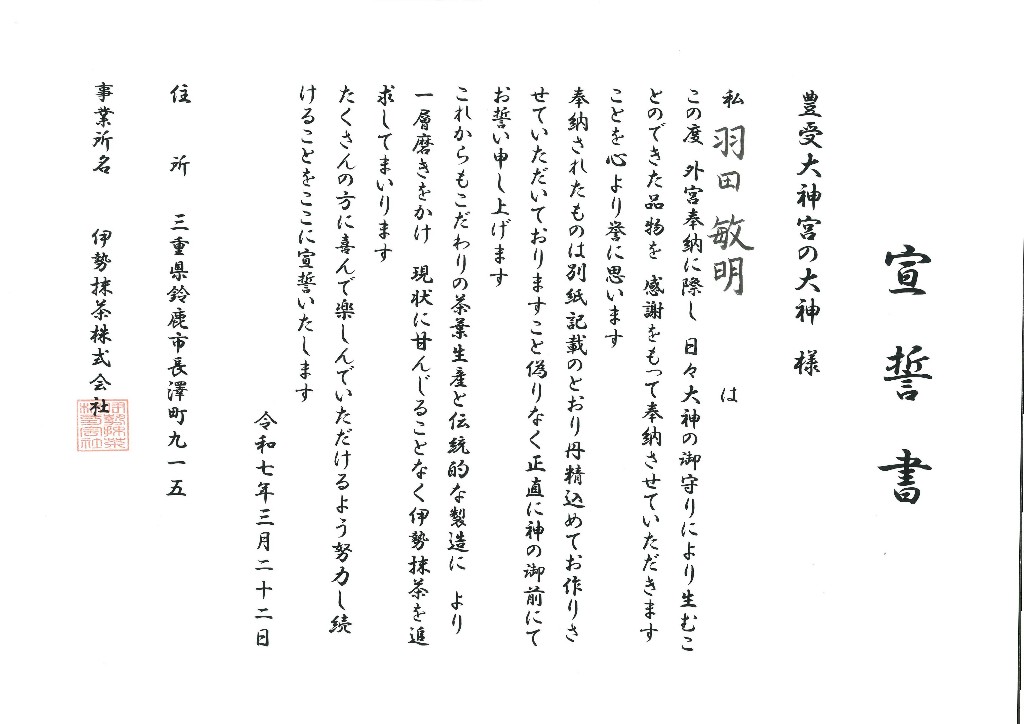 宣誓書
豊受大神宮の大神 様
私 羽田 敏明 は
この度 外宮奉納に際し 日々大神の御守りにより生むこ
とのできた品物を 感謝をもって奉納させていただきます
ことを心より誉に思います
奉納されたものは別紙記載のとおり丹精込めてお作りさ
せていただいておりますこと偽りなく正直に神の御前にて
お誓い申し上げます
これからもこだわりの茶葉生産と伝統的な製造に より
一層磨きをかけ 現状に甘んじることなく伊勢抹茶を追
求してまいります
たくさんの方に喜んで楽しんでいただけるよう努力し続
けることをここに宣誓いたします
令和七年三月二十二日
住 所 三重県鈴鹿市長澤町九一五
事業所名 伊勢抹茶株式会社